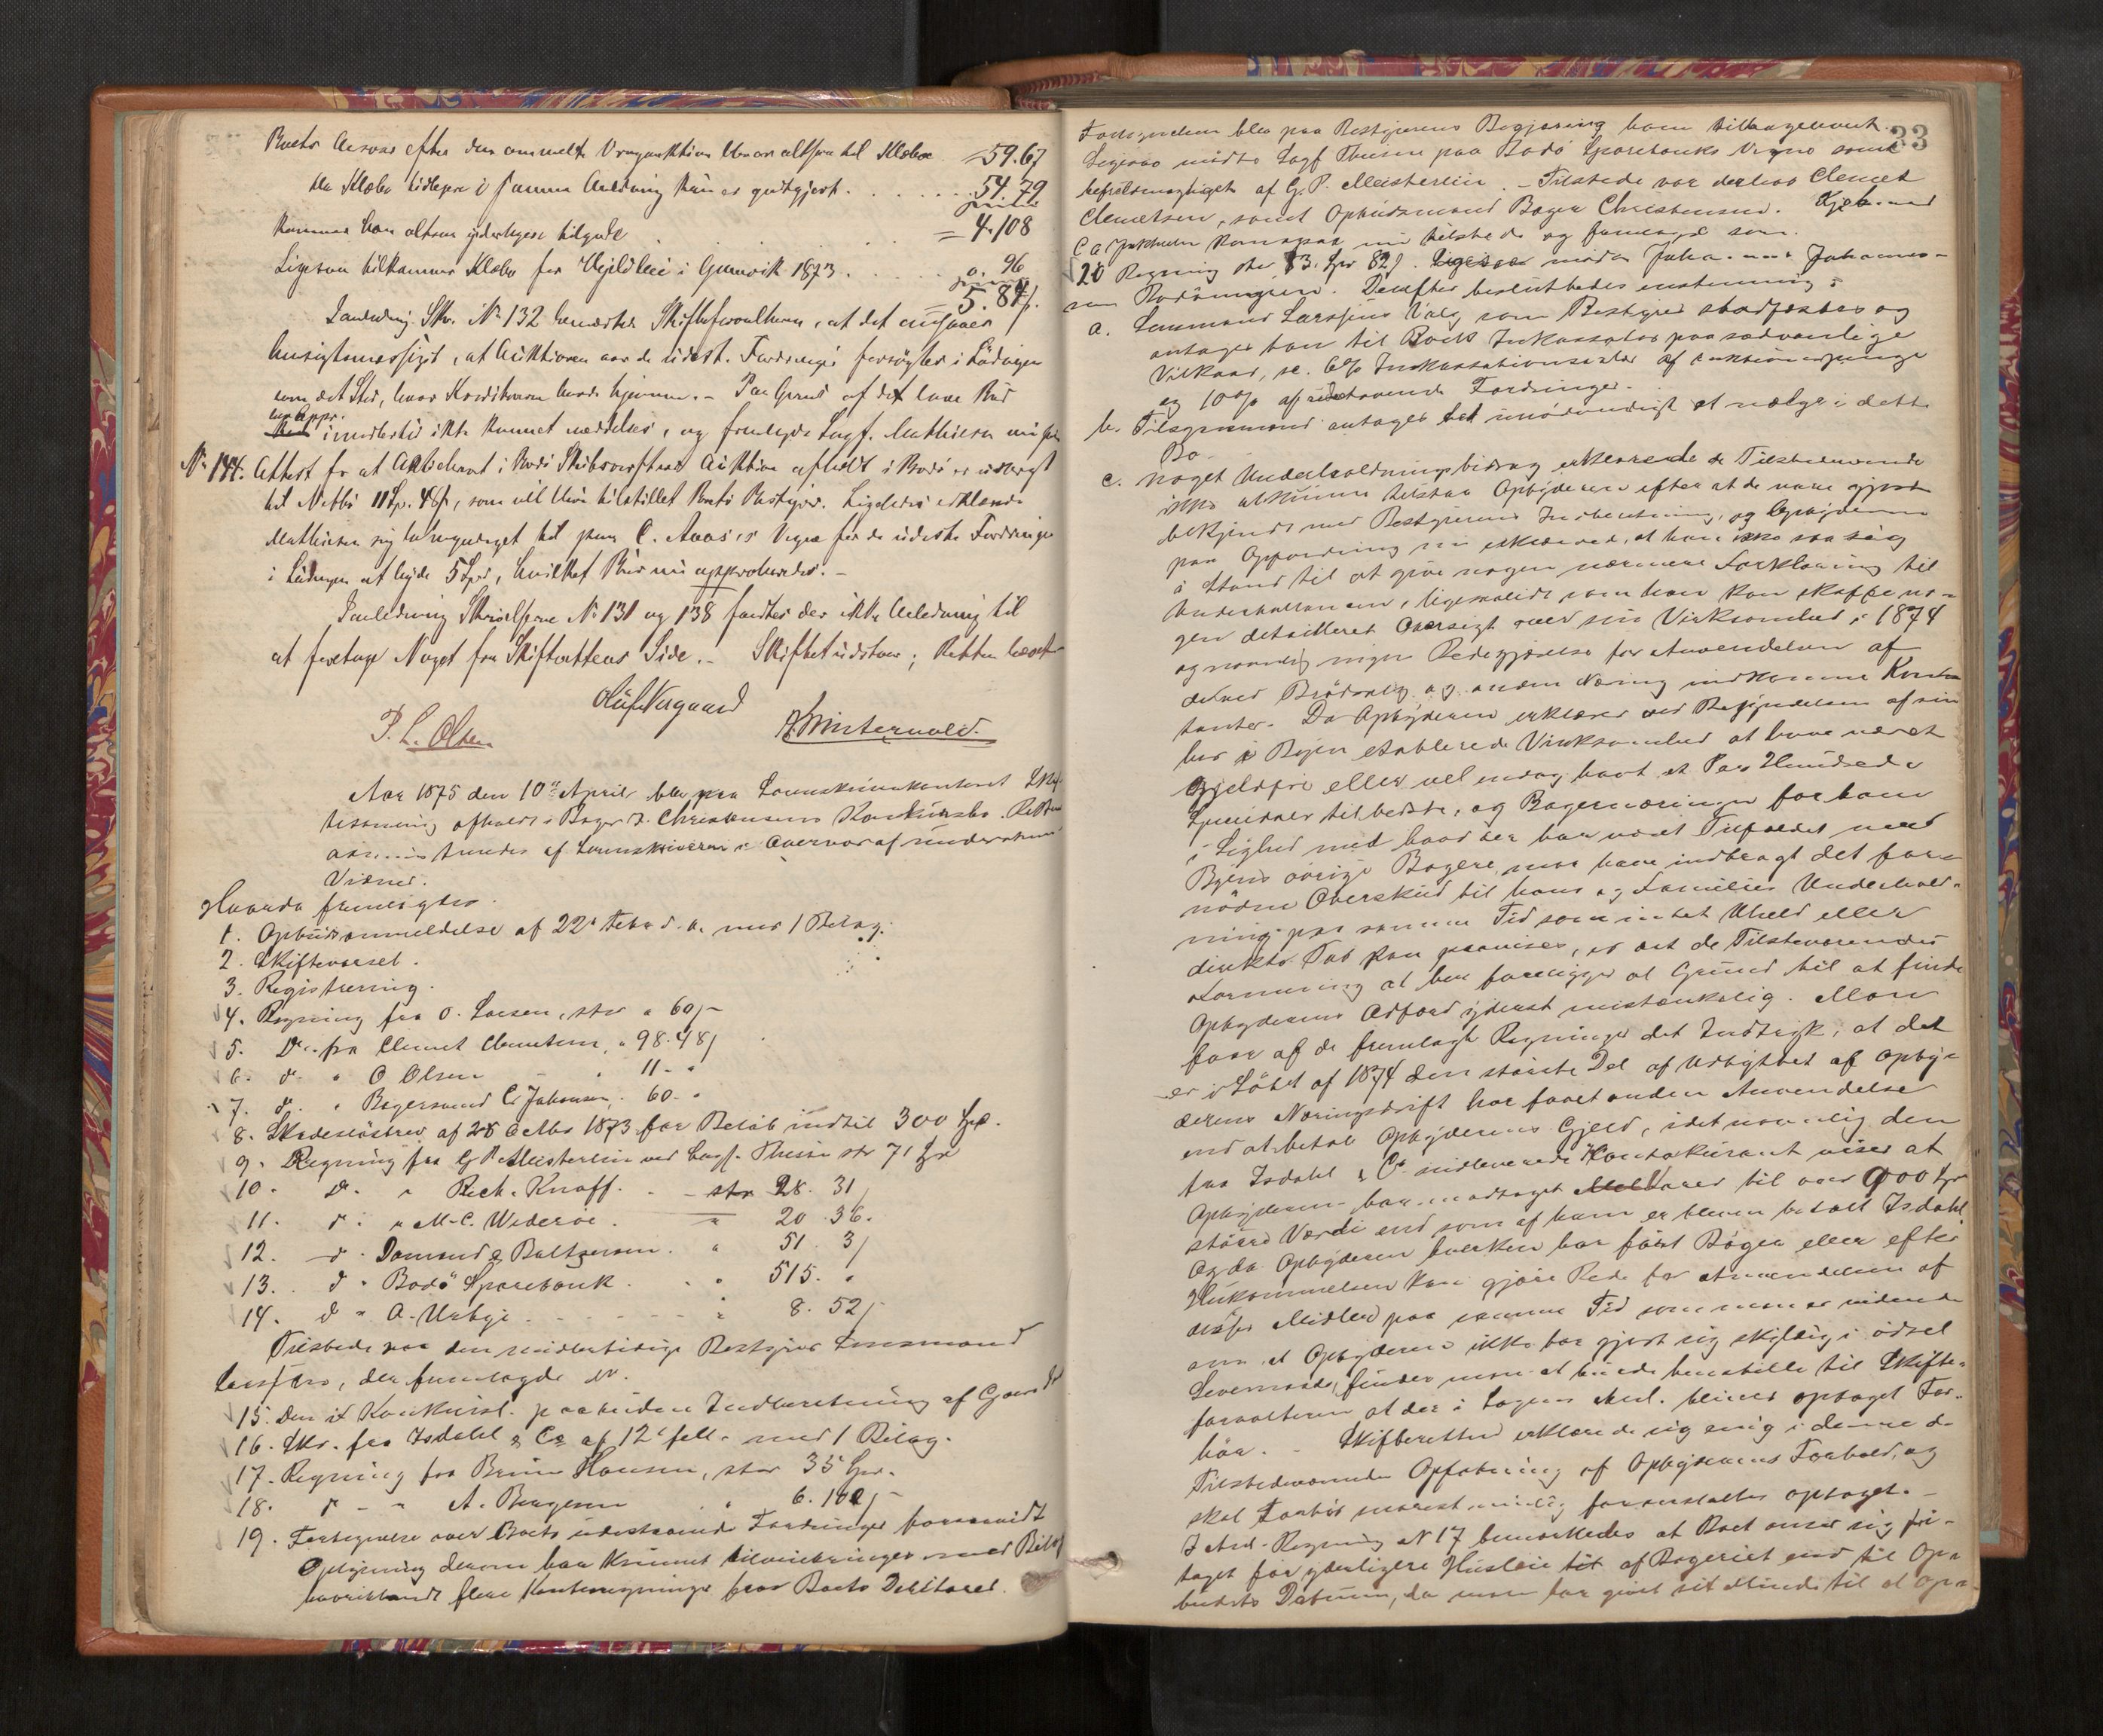 Boets Ansvar efter den anmeldte Vragauktion bliver altsaa til Klæboe 59.67
da Klæboe tidligere i samme Anledning kun er godtgjort . . . 54.79
kommer ham altsaa yderligere tilgode = 4.108
Ligesaa tilkommer Klæboe for Vejleie i Gjersvik 1873 . . . „ 96
5. 84 /.
I anledning Skr. No 132 bemærkede Skifteforvalteren, at det ansaaes
hensigtsmessigst, at Auktionen over de udest. Fordringer forsøgtes i Lødingen
som det Sted, hvor Kreditorerne havde hjemme. – Paa Grund af det lave Bud
en Appr.
imidlertid ikke kunnet meddeles, og fremlagde Sagf. Mathiesen nu sin
No 144. Attest for at i Bodø Skibsværfts Auktion afholdt i Bodø er udbragt
til Netto 11 Sp. 48 s, som vil blive tilstillet Boets Bestyrer. Ligeledes erklærede
Mathiesen sig bemyndiget til paa C. Aaas's Vegne for de udestd. Fordringer
i Lødingen at byde 5 Spd, hvilket Bud nu approberedes. –
I anledning Skrivelserne No 131 og 138 fandtes der ikke Anledning til
at foretage Noget fra Skifterettens Side. – Skiftet udstaar; Retten hævet
Oluf Vergaard
P. L. Olsen
Aar 1875 den 10de April blev paa Sorenskriverkontoret Skif-
tesamling afholdt i Bager J. Christensens Konkursbo. Retten
administreredes af Sorenskriveren i Overvær af undertegnede
Vidner.
Hvorda fremlagdes.
1. Opbudsanmeldelse af 22d Febr d. a. med 1 Bilag.
2. Skiftevarsel.
3. Registrering.
4. Regning fra O. Larsen, stor „ 60 /-
5. Do. fra Clemet Clemetsen, „ 98. 48 /
6. d. „ O Olsen „ 11 - „
7. d. „ Bagersvend C. Johansen, „ 60. „
8. Skadesløsbrev af 28 Octbr 1873 for Beløb indtil 300 Spd.
9. Regning fra G. P. Meisterlin ved Sagf. Thiesen stor 71 Spd
10. D. „ Rich. Knoff. – stor 28. 31 /
11. d. „ M. C. Widerøe. „ 20. 36.
12. d. „ Domaas & Baltzersen. „ 51. 3 /
13. d „ Bodø Sparebank. „ 515. „
14. d „ A. Urbye „ 8. 52 /-
Tilstede var den midlertidige Bestyrer Lensmand
Larssen, der fremlagde dr.
15. Den it Konkursl. paabudne Indberetning af Gaars dt
16. Skr. fra Isdahl & Co af 12te febr. med 1 Bilag.
17. Regning fra Bruun Hansen, stor 35 Spd.
18. d – „ A. Bergesen „ 6. 102 /-
19. Fortegnelse over Boets udestaaende Fordringer forsaavidt
Oplysning derom har kunnet tilveiebringes med Bilag
hvoriblandt flere Kontraregninger fra Boets Debitorer.
33
Fortegnelsen blev paa Bestyrerens Begjæring ham tilbageleveret.
Ligesaa mødte Sagf Thiesen paa Bodø Sparebanks Vegne samt
befuldmægtiget af G. P. Meisterlin. – Tilstede var derhos Clemet
Clemetsen, samt Opbudsmand Bager Christensen. Kjøbmand
C. A. Jakhelln kom og saa nu tilstede og fremlagde som.
20 Regning stor 83. Spd 82 s. Ligesaa mødte Johannes Johannes-
sen Rødøningen. Derefter besluttedes enstemmig:
a. Lensmand Larssens Valg som Bestyrer stadfæstes og
antages han til Boets Inkassator paa sædvanlige
Vilkaar, sc. 6% Inkassationssalær af auktionspenge
og 10% af udestaaende Fordringer.
b. Tilsynsmand antages det unødvendigt at vælge i dette
Bo.
c. Noget Underholdningsbidrag erklærede de Tilstedeværende
ikke at kunne tilstaa Opbyderen efter at de vare gjort
bekjendt med Bestyrerens Indberetning, og Opbyderen
paa Opfordring nu erklærede, at han ikke saa sig
i Stand til at give nogen nærmere Forklaring til
Underballancen, ligesaalidt som han kan skaffe no-
gen detailleret Oversigt over sin Virksomhed i 1874
og navnlig ingen Redegjørelse for Anvendelsen af
de ved Brødsalg og anden Næring indkomne Kontan-
tanter. Da Opbyderen erklærer ved Begyndelsen af sin
her i Byen etablerede Virksomhed at have været
Gjældfri eller vel endog havt et Par Hundrede
Speciedaler tilbedste, og Bagernæringen for ham
i Lighed med hvad der har været Tilfældet med
Byens øvrige Bagere, maa have indbragt det for-
nødne Overskud til hans og Families Underhold-
ning paa samme Tid som intet Uheld eller
direkte Tab kan paavises, er det de Tilstedeværendes
Formening at her foreligger al Grund til at finde
Opbyderens Adfærd yderst mistænkelig. Man
faar af de fremlagte Regninger det Indtryk, at det
er i Løbet af 1874 den største Del af Udbyttet af Opby-
derens Næringsdrift har faaet anden Anvendelse
end at betale Opbyderens Gjeld, idet navnlig den
fra Isdahl & Co indleverede Kontokurant viser at
Opbyderen har modtaget Melvarer til over 900 Spd
større Værdi end som af ham er bleven betalt Isdahl.
Og da Opbyderen hverken har ført Bøger eller efter
Hukommelsen kan gjøre Rede for Anvendelsen af
disse Midler paa samme Tid som man er vidende
om at Opbyderen ikke har gjort sig skyldig i ødsel
Levemaade, finder man at burde henstille til Skifte-
forvalteren at der i Sagens Anl. bliver optaget For-
hør. – Skifteretten erklærede sig enig i denne de
Tilstedeværendes Opfatning af Opbyderens Forhold, og
skal Forhør snarest mulig foranstaltes optaget. –
I Anl. Regning No 17 bemærkedes at Boet anser sig fri-
taget for yderligere Husleie til af Bageriet end til Op-
budets Datum, da man har givet sit Minde til at Op-